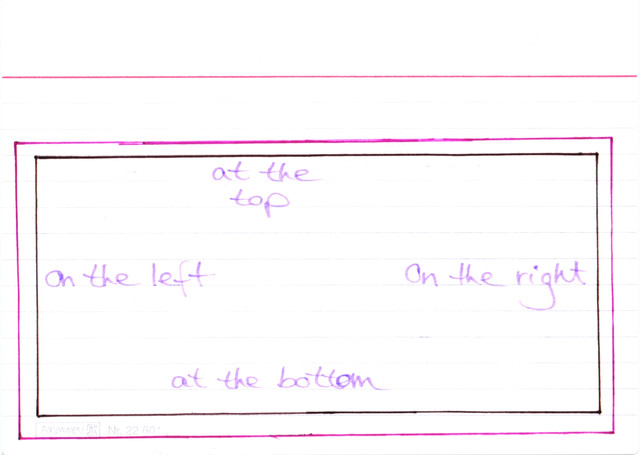 at the
top
on the left
On the right
at the bottom